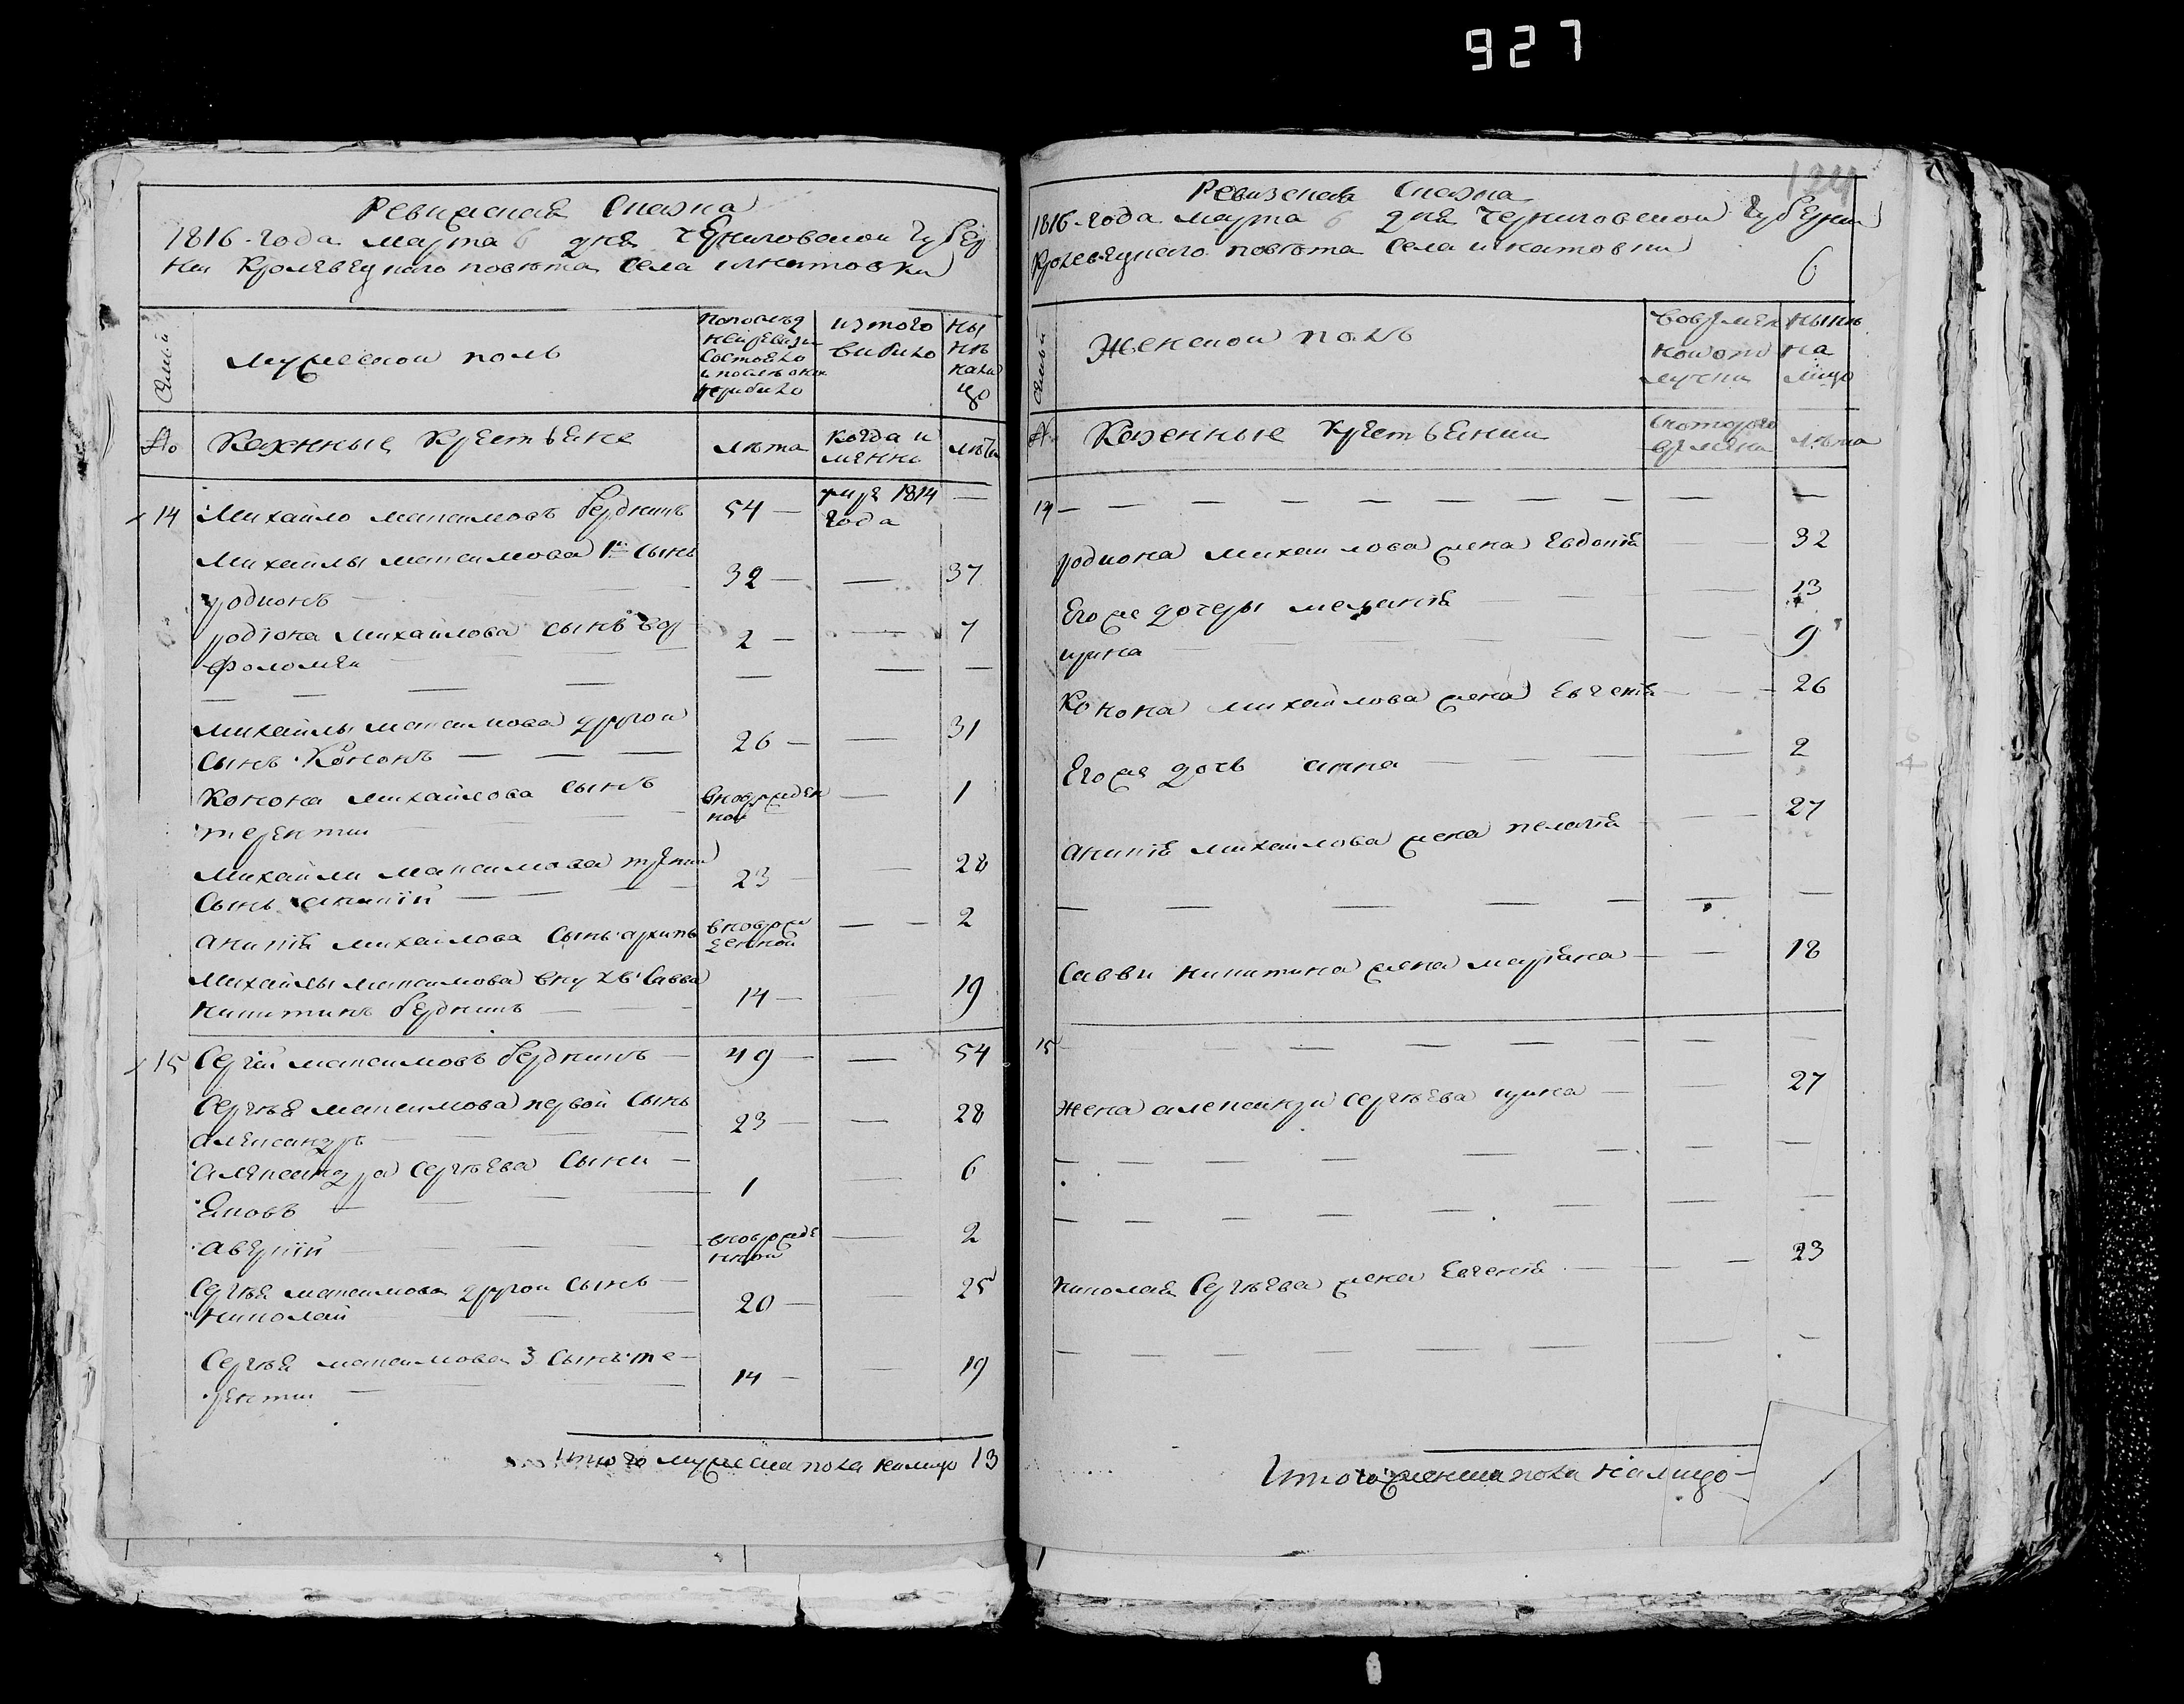 927
Ревизская Сказка
1816-года марта 6 дня Черниговской Губер
нии Кролевецкого повѣта Села
Семьи
Мужеской полъ
По послѣд
ней ревизи
Состояло
и послѣ оной
прибыло
Изтого
выбыло
Ны
нѣ
нали
цо
№
Казенные Крестьяне
лѣта
когда и
менно
лѣта
14 Михайло максимовъ Бердникъ 54 — умре 1814 —
года
Михайлы максимова 1й Сынъ
родионъ — 32 — — 37
родіона михайлова сынъ вар
фоломей — 2 — — 7
— — — — — — —
михайлы максимова другой
Сынъ Кононъ — — — 26 — — 31
Конона михайлова сынъ
терентий — вноврожден
ной — 1
Михайли максимова третий
Сынъ — — 23 — — 28
михайлова Сынъ архипъ вноврож
денной — — 2
Михайлы максимова внукъ Савва
никитинъ бердникъ — 14 — — 19
15 Сергѣй максимовъ бердникъ — 49 — — 54
Сергѣя максимова первой Сынъ
александръ — 23 — — 28
александра Сергѣева Сыни —
Яковъ — 1 — 6
Аверкій — вноврожде
нной — 2
Сергѣя максимова другой Сынъ —
николай — 20 — — 25
Сергѣя максимова 3 Сынъ те-
рентий — 14 — — 19
Итого мужеска пола налицо 13
124
Ревизская Сказка
1816-года марта 6 дня Черниговской Губернии
Кролевецкаго повѣта Села
6
Семьи
Женской полъ
Вовремен
ной от
лучки
нынѣ
на
лицо
№
Казенные крестьянки
Скоторого
времени
лѣта
14 — — — — — — — — — —
родиона михайлова жена Евдокія — — 32
Его же дочеры меланія — — 13
ирина — — — 9
Конона михайлова жена Евгенія — — 26
Его же дочь анна — — — 2
михайлова жена пелагія — — 27
— — — — — — —
Савви никитина жена маріяна — — 18
15 — — — — — — —
Жена александра Сергѣева ирина — — 27
— — — — — — —
— — — — — — —
николая Сергѣева жена Евгенія — — — 23
— — — — — — —
Итого женска пола налицо —